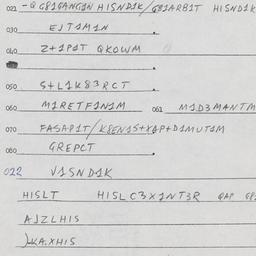 021 - Q GP1GANG1N HISND1K/GP1ARB1T HISND1K
030 EJT1M1N
040 Z+1P1T QKOWM
050 S+L1K83RCT
060 M1RETF1N1M 061 M1D3MANTM
070 FASAP1T/K8EN1S+XAP+D1MUT1M
080 GREPCT
022 V1SND1K
HISLT HISLC3X1NT3R QAP GP
AJZLHIS